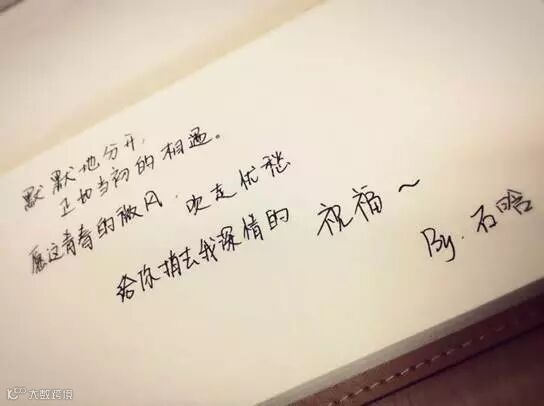 默默地分开，
正如当初的相遇。
愿这青春的微风，吹走忧愁
给你捎去我深情的 祝福～
By. 石哈
大数跨境